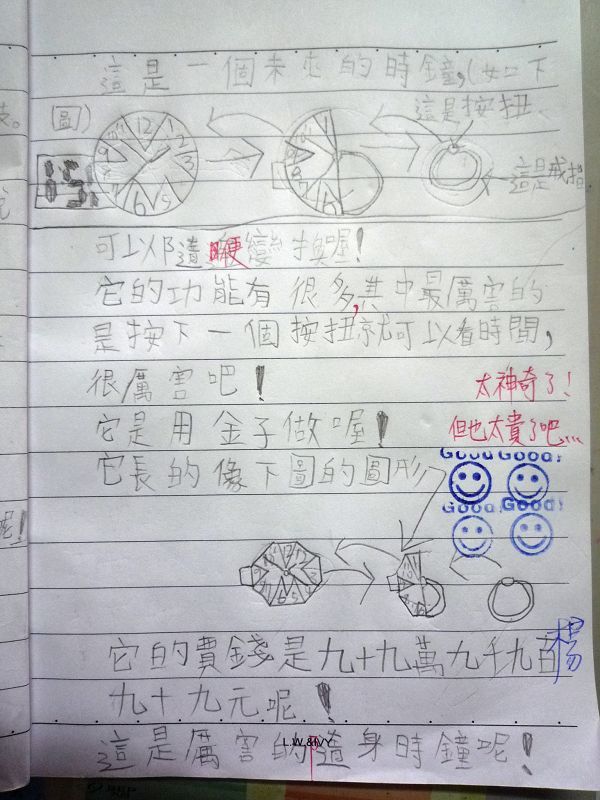 這是一個未來的時鐘,(如下
圖)
這是按扭
這是戒指
12
2
3
5
6
9
15:
可以隨便變換喔!
它的功能有很多,其中最厲害的
是按下一個按扭就可以看時間,
很厲害吧!
太神奇了!
它是用金子做喔!
但也太貴了吧...
它長的像下圖的圖形
Good! Good!
Good! Good!
它的費錢是九十九萬九千九百
楊
九十九元呢!
L.W.&IVY
這是厲害的隨身時鐘呢!
呢!